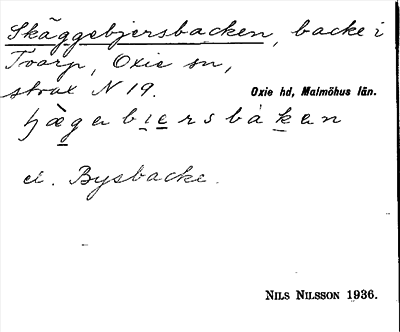 Skäggebjersbacken, backe i
Tvärp, Oxie sn,
strax N 19. Oxie hd, Malmöhus län.
ei. Bysbacke.
NILS NILSSON 1936.